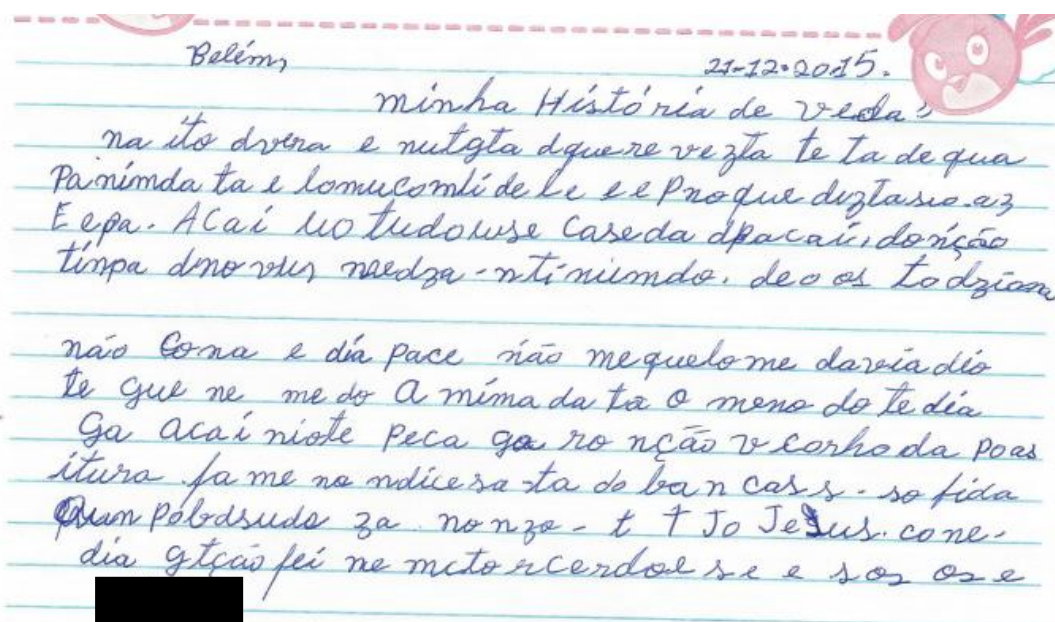 Belém, 21-12-2015.
minha História de veda
na ito dvera e nutgta dquere vezta te ta de qua
Panímda ta e lomucomlide le e e Proque diztasio.az
E epa. Acaí uo tudo use Caseda dpacaí, donção
tinpa dnovus nredza-ntiniumdo. deo os todziana
não Cona e día pace não mequelome davia dio
te que ne me do a míma da ta o meno do te día
Ga acaí niote peca ga ro nção v corhoda poas
itura fa me na ndice sa-ta do ban cass. so fida
Quan Pólodsudo za nonzo-t t Jo Jesus. cone-
día gtção fei ne mcto rcerdoe se e sos ose